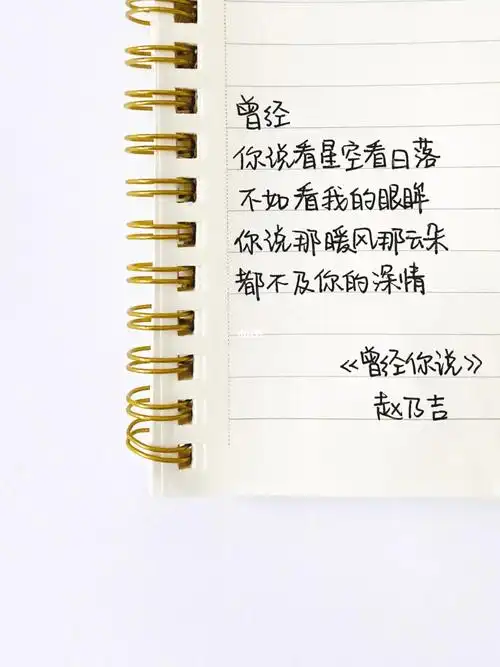 曾经
你说看星空看日落
不如看我的眼眸
你说那暖风那云朵
都不及你的深情
《曾经你说》
赵乃吉